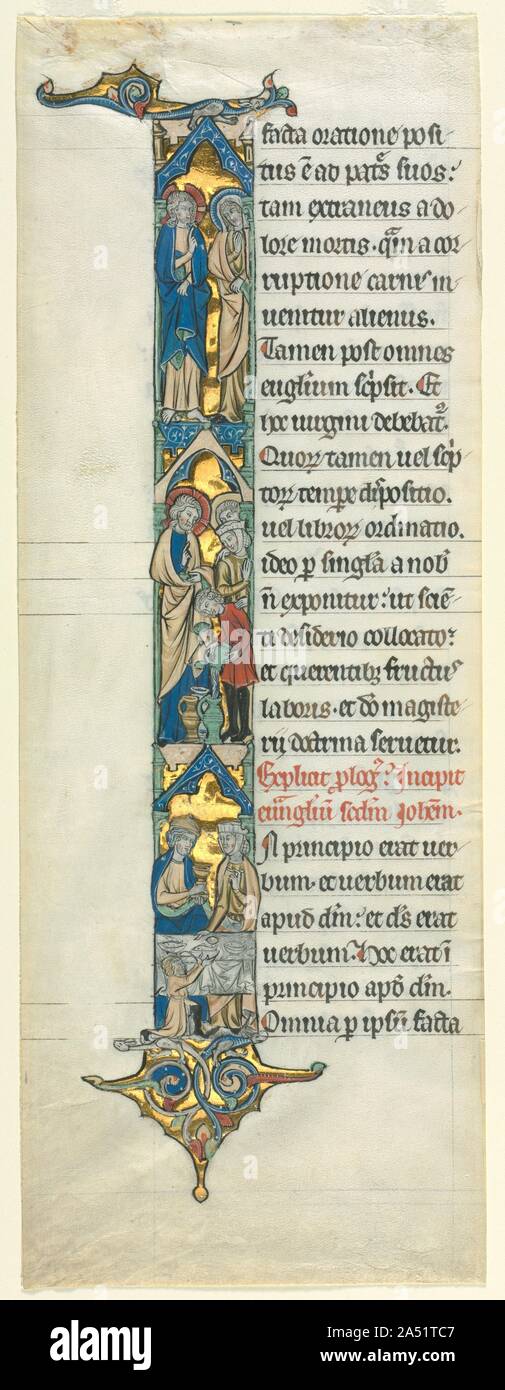 facta oratione posi-
tus ē ad patꝭ suos:
tam extraneus a do-
lore mortis. qͣm a cor-
ruptione carnis in-
uenitur alienus.
Tamen post omnes
eugl̄ium scͥpsit. Et
hoc uirgini debebat᷑.
Quoꝝ tamen uel scͥp-
toꝝ tempe disposicio.
uel libroꝝ ordinatio.
ideo ꝑ singl̄a a nob᷒
n̄ exponitur: ut sciē-
ti desiderio collocato:
et querentibꝫ fructus
laboris. et dō magiste-
rij doctrina seruetur.
Explicit ꝓlog᷒. Incipit
euāgliū scdm Johem.
In principio erat uer-
bum. et uerbum erat
apud dm̄: et ds̄ erat
uerbum. Hoc erat ī
principio apd̄ dm̄.
Omnia ꝑ ipsū facta
alamy
alamy
Image ID: 2A51TC7
www.alamy.com